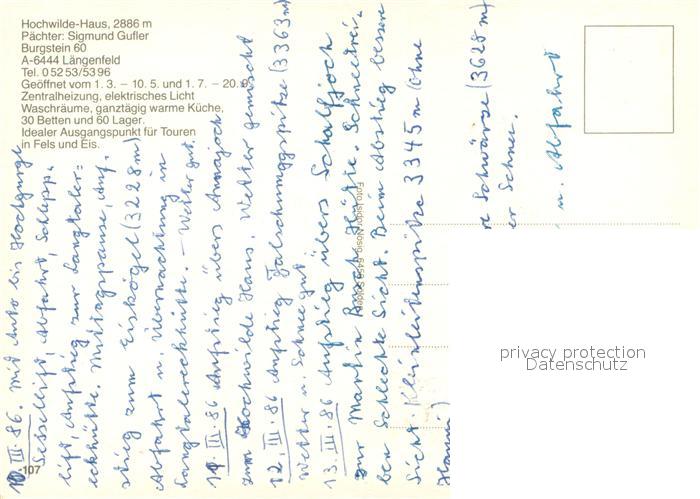 Hochwilde-Haus, 2886 m
Pächter: Sigmund Gufler
Burgstein 60
A-6444 Längenfeld
Tel. 0 52 53/53 96
Geöffnet vom 1. 3. – 10. 5. und 1. 7. – 20. 9.
Zentralheizung, elektrisches Licht
Waschräume, ganztägig warme Küche,
30 Betten und 60 Lager.
Idealer Ausgangspunkt für Touren
in Fels und Eis.
10. III. 86. Mit Auto bis Hochgurgl
Sessellift, Abfahrt, Schlepp-
lift, Aufstieg zur Langtaler-
eckhütte. Mittagspause, Auf-
stieg zum Eiskögel (3228 m)
Abfahrt u. Übernachtung in
Langtalereckhütte. – Wetter gut.
11. III. 86 Aufstieg übers Annajoch
zum Hochwilde Haus. Wetter gemischt
12. III. 86 Aufstieg Falschunggspitze (3363 m)
Wetter u. Schnee gut
13. III. 86 Aufstieg übers Schalfjoch
zur Martin Busch Hütte. Schneetrei-
ben schlechte Sicht. Beim Abstieg bessere
Sicht. Kleinleitenspitze 3345 m (ohne
Hanni)
re Schwärze (3628 m)
er Schnee.
u. Abfahrt
Foto Isidor Nösig, 6450 Sölden
107
privacy protection
Datenschutz